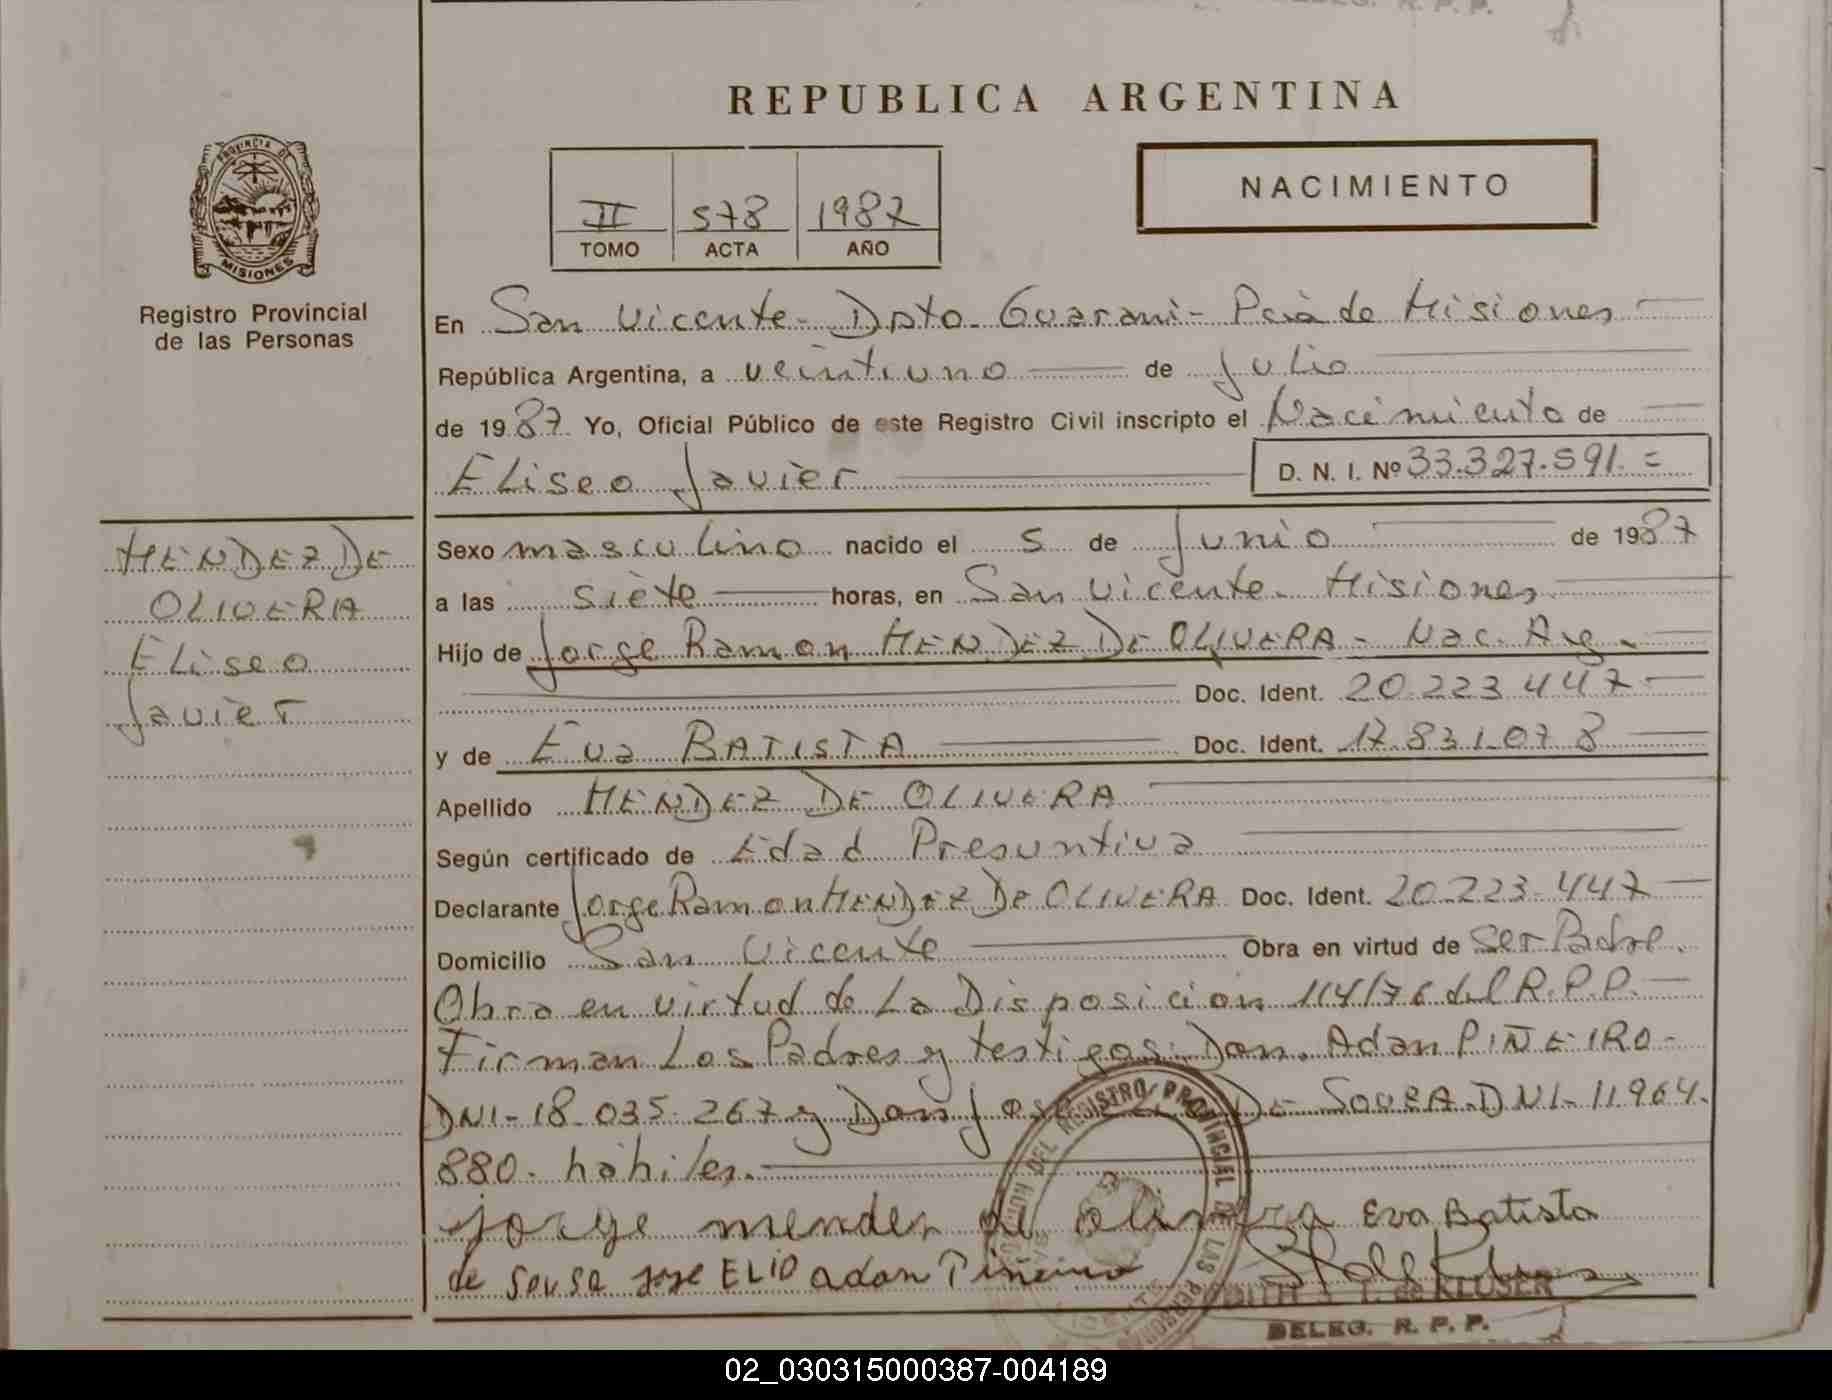 DELEG. R. P. P.
REPUBLICA ARGENTINA
PROVINCIA DE
MISIONES
Registro Provincial
de las Personas
II 578 1987
TOMO ACTA AÑO
NACIMIENTO
En San Vicente - Dpto. Guarani - Pcia de Misiones
República Argentina, a veintiuno de Julio
de 1987. Yo, Oficial Público de este Registro Civil inscripto el Nacimiento de
Eliseo Javier
D. N. I. Nº 33.327.591. =
MENDEZ DE
OLIVERA
Eliseo
Javier
Sexo masculino nacido el 5 de Junio de 1987
a las siete horas, en San Vicente - Misiones
Hijo de Jorge Ramon MENDEZ DE OLIVERA - Nac. Arg.
Doc. Ident. 20.223.447
y de Eva BATISTA Doc. Ident. 17.831.078
Apellido MENDEZ DE OLIVERA
Según certificado de Edad Presuntiva
Declarante Jorge Ramon MENDEZ DE OLIVERA Doc. Ident. 20.223.447
Domicilio San Vicente Obra en virtud de Ser Padre.
Obra en virtud de La Disposicion 114/76 del R.P.P.
Firman Los Padres y testigos: Don. Adan PIÑEIRO -
DNI - 18.035.267 y Don Jose DE SOUSA - DNI - 11.964.
880. habiles.
Jorge mendez de olivera Eva Batista
de Sousa Jose ELIO adan Piñeiro
DEL REGISTRO PROVINCIAL DE LAS PERSONAS
EDITH T. de KLUSER
DELEG. R. P. P.
02_030315000387-004189